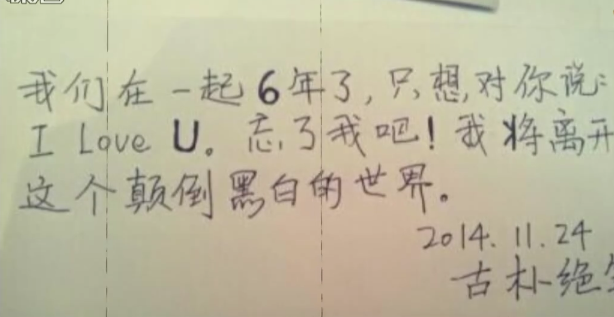 我们在一起6年了,只想对你说:
I Love U。忘了我吧!我将离开
这个颠倒黑白的世界。
2014.11.24
古朴绝